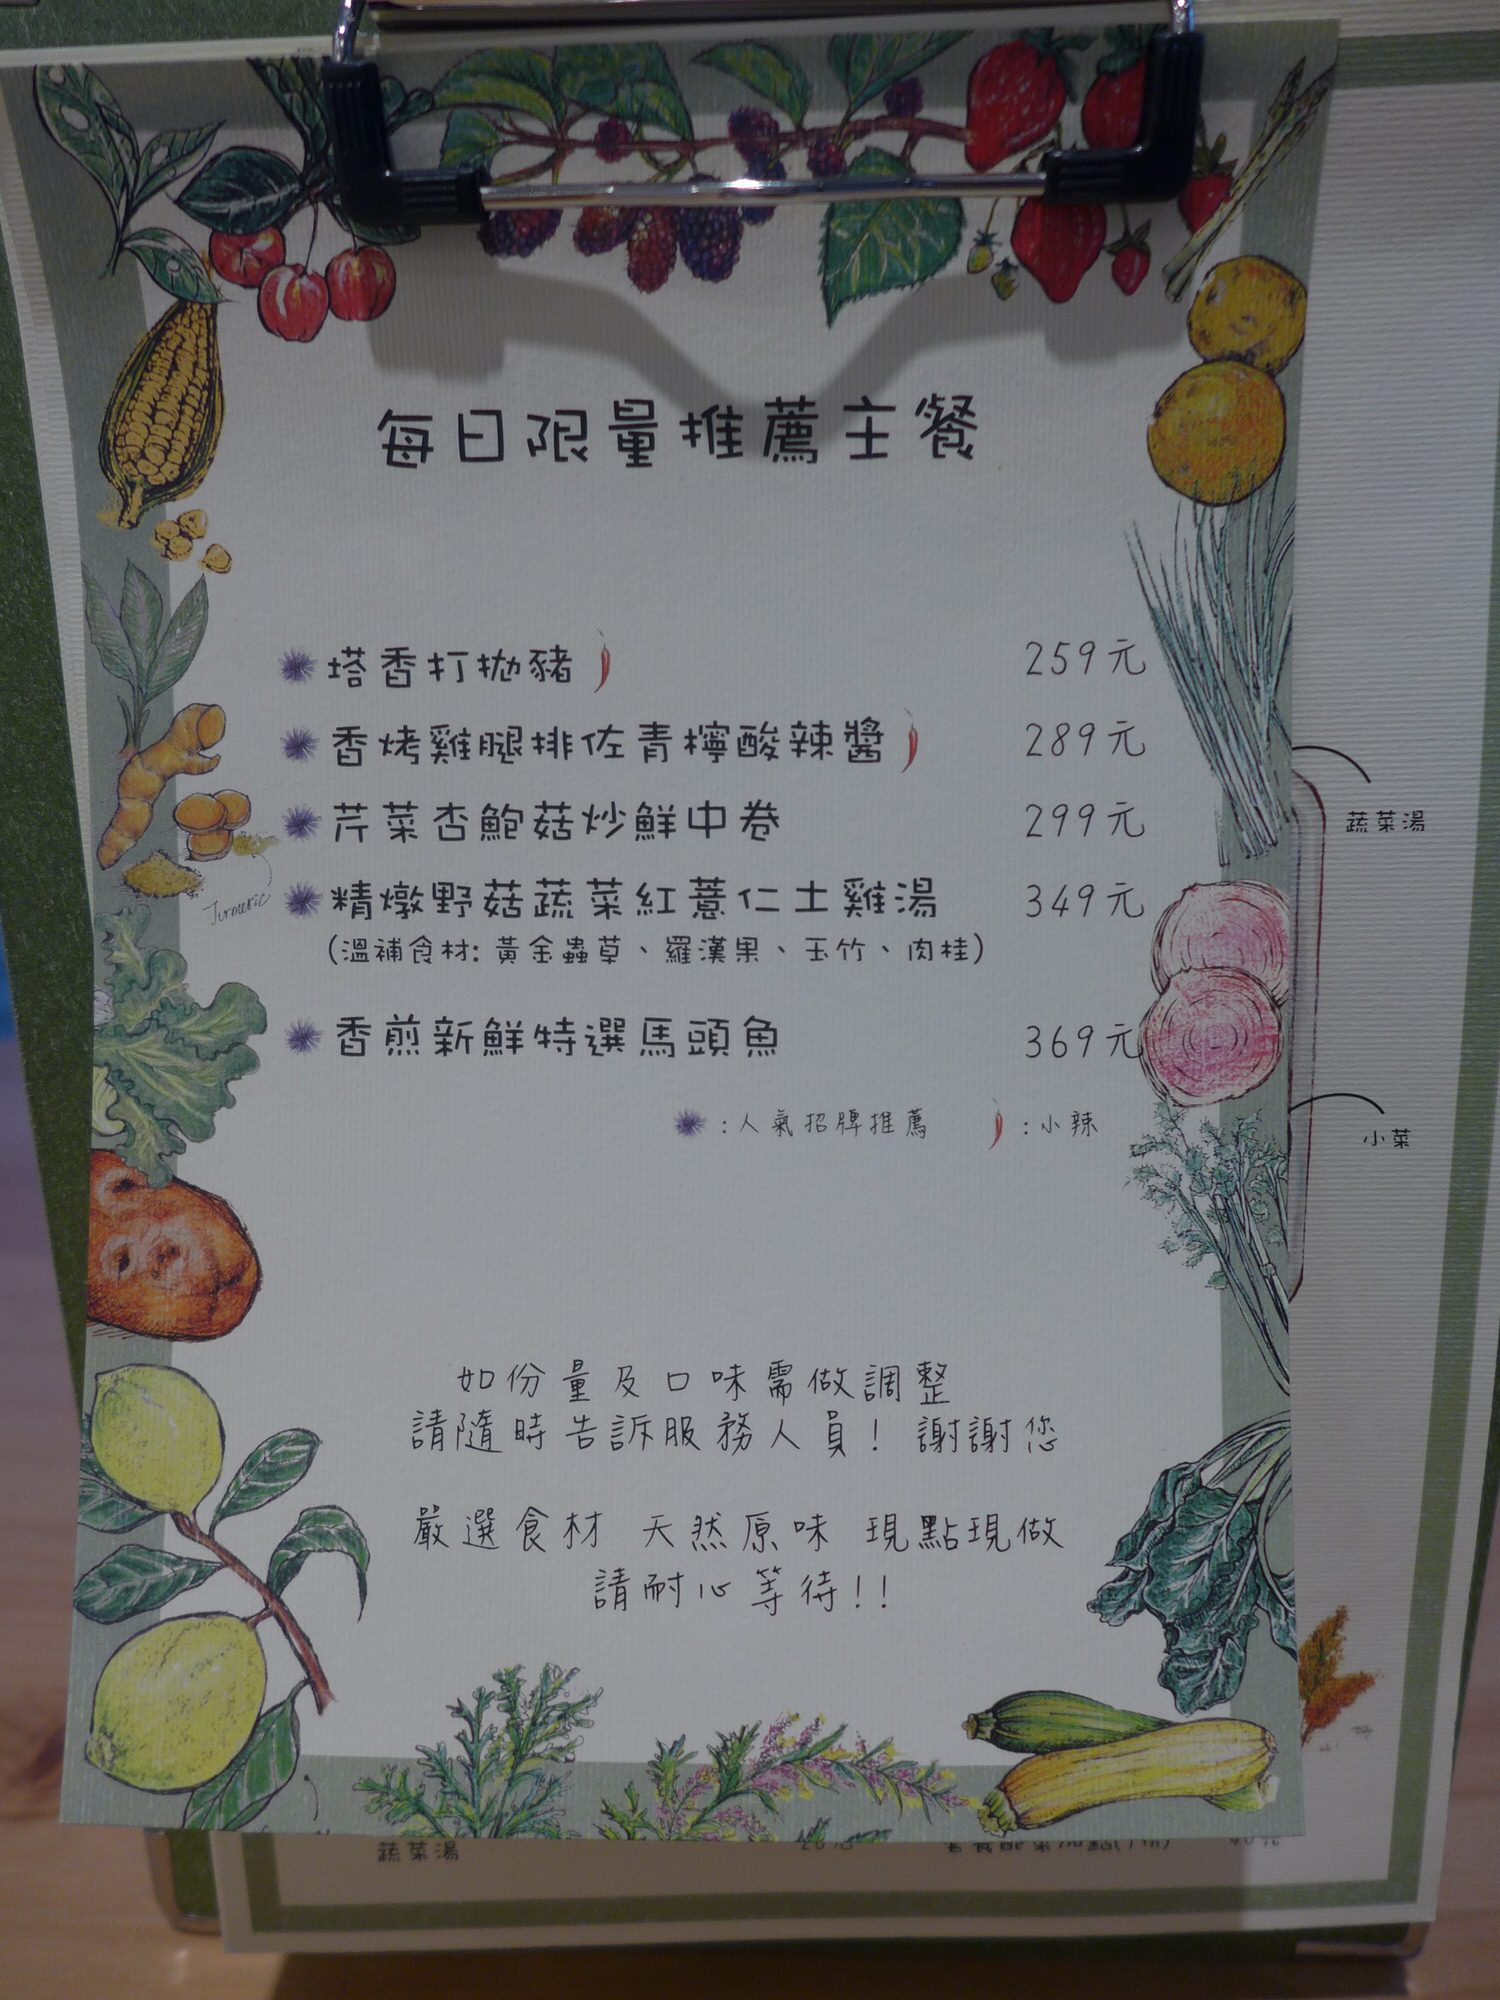 每日限量推薦主餐
塔香打拋豬 259元
香烤雞腿排佐青檸酸辣醬 289元
芹菜杏鮑菇炒鮮中卷 299元
精燉野菇蔬菜紅薏仁土雞湯 349元
(溫補食材: 黃金蟲草、羅漢果、玉竹、肉桂)
香煎新鮮特選馬頭魚 369元
:人氣招牌推薦 :小辣
如份量及口味需做調整
請隨時告訴服務人員! 謝謝您
嚴選食材 天然原味 現點現做
請耐心等待!!
Turmeric
蔬菜湯
小菜
蔬菜湯